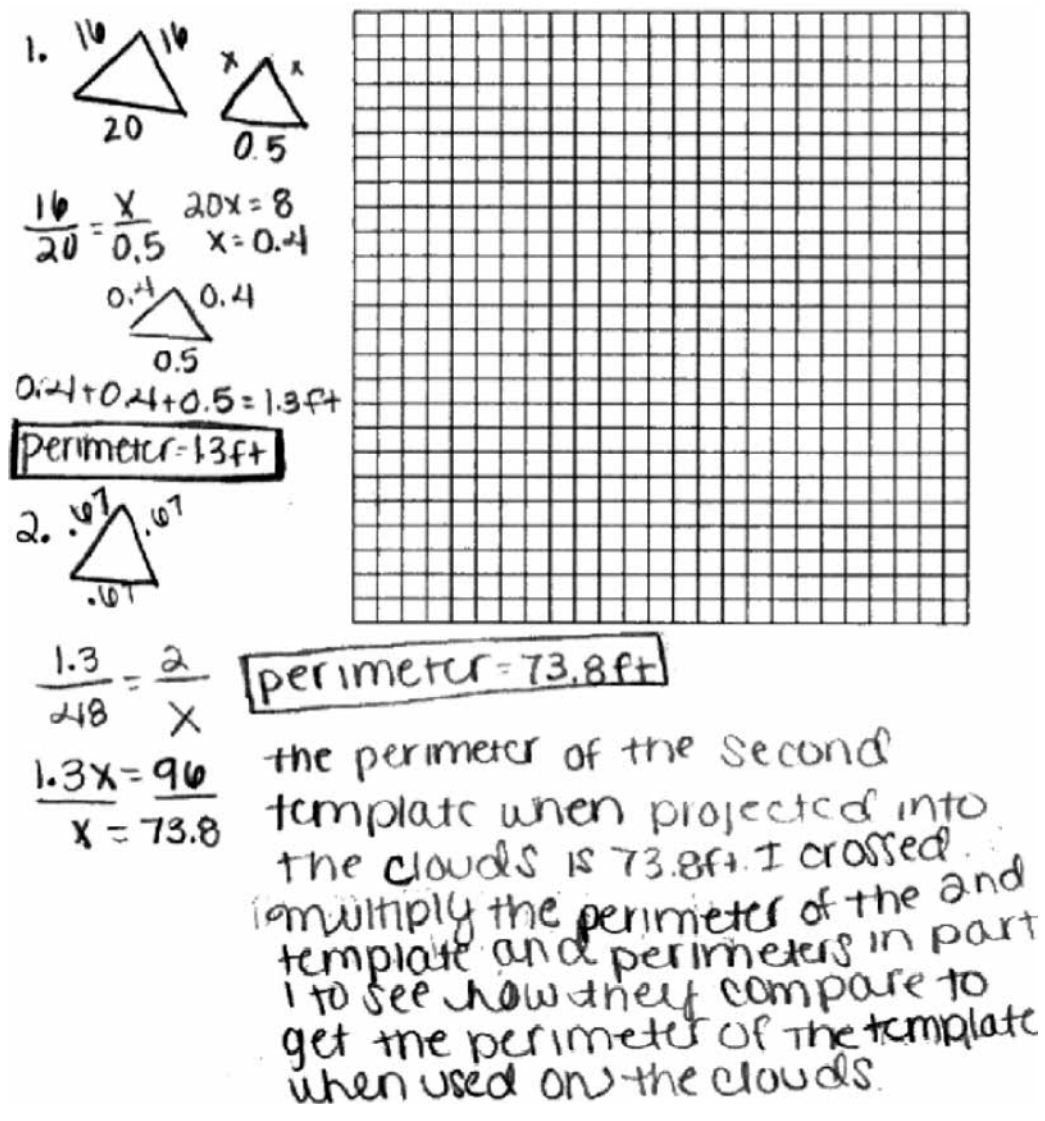 1. 16 16
20
x x
0.5
16/20 = x/0.5 20x = 8
x = 0.4
0.4 0.4
0.5
0.4+0.4+0.5=1.3ft
perimeter=1.3ft
2. .67 .67
.67
1.3/48 = 2/x
1.3x = 96
x = 73.8
perimeter=73.8ft
the perimeter of the second
template when projected into
the clouds is 73.8ft. I crossed
multiply the perimeter of the 2nd
template and perimeters in part
1 to see how they compare to
get the perimeter of the template
when used on the clouds.